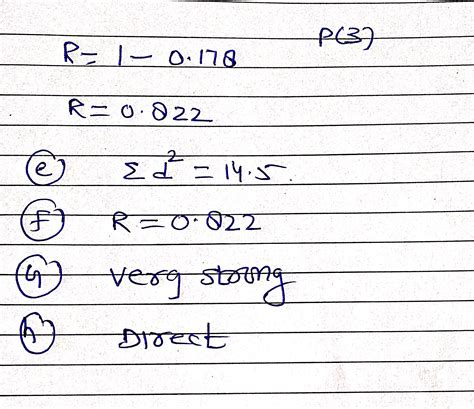 P(3)
R= 1 - 0.178
R= 0.822
(e) Σd² = 14.5.
(f) R = 0.822
(g) verg strong
(h) Direct